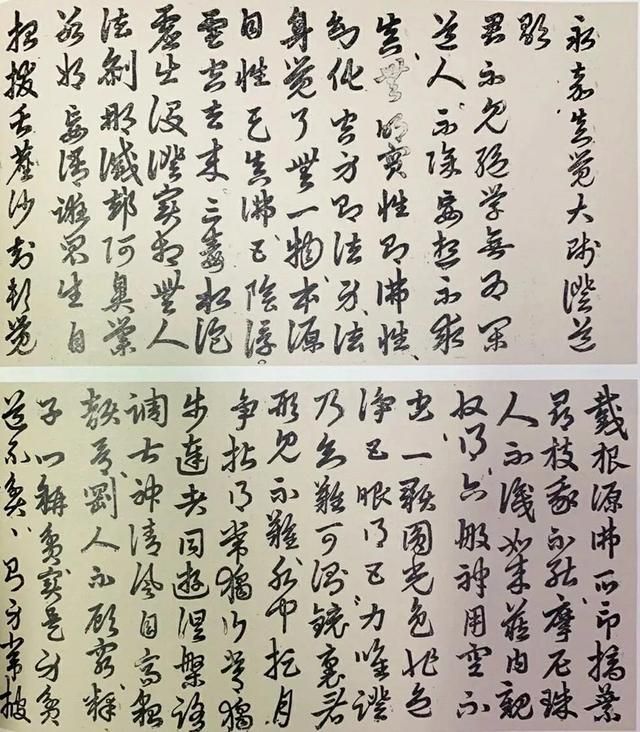 永嘉真覺大師證道
歌
君不見絕學無為閑
道人不除妄想不求
真無明實性即佛性
幻化空身即法身法
身覺了無一物本源
自性天真佛五陰浮
雲空去來三毒水泡
虛出沒證實相無人
法剎那滅卻阿鼻業
若將妄語誑眾生自
招拔舌塵沙劫頓覺
截根源佛所印摘葉
尋枝我不能摩尼珠
人不識如來藏內親
收得六般神用空不
空一顆圓光色非色
淨五眼得五力唯證
乃知難可測鏡裏看
形見不難水中捉月
爭拈得常獨行常獨
步達者同遊涅槃路
調古神清風自高貌
顇骨剛人不顧窮釋
子口稱貧實是身貧
道不貧〻則身常披